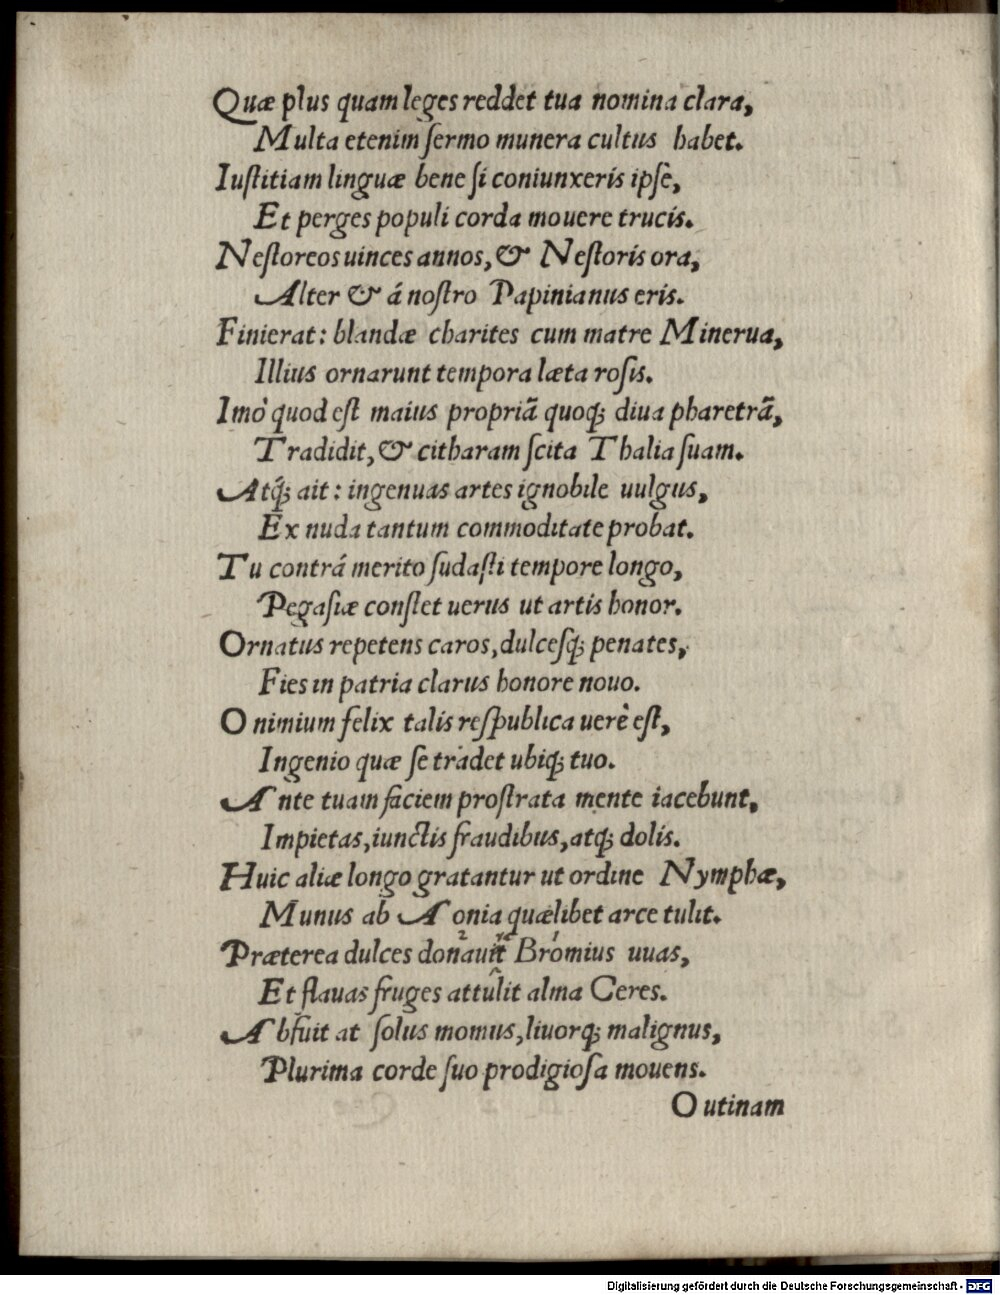 Quæ plus quam leges reddet tua nomina clara,
Multa etenim ſermo munera cultus habet.
Iuſtitiam linguæ bene ſi coniunxeris ipſè,
Et perges populi corda mouere trucis.
Neſtoreos uinces annos, & Neſtoris ora,
Alter & á noſtro Papinianus eris.
Finierat: blandæ charites cum matre Minerua,
Illius ornarunt tempora læta roſis.
Imò quod eſt maius propriã quoq; diua pharetrã,
Tradidit, & citharam ſcita Thalia ſuam.
Atq́; ait: ingenuas artes ignobile uulgus,
Ex nuda tantum commoditate probat.
Tu contrá merito ſudaſti tempore longo,
Pegaſiæ conſtet uerus ut artis honor.
Ornatus repetens caros, dulceſq; penates,
Fies in patria clarus honore nouo.
O nimium felix talis reſpublica uerè eſt,
Ingenio quæ ſe tradet ubiq; tuo.
Ante tuam faciem proſtrata mente iacebunt,
Impietas, iunctis fraudibus, atq; dolis.
Huic aliæ longo gratantur ut ordine Nymphæ,
Munus ab Aonia quælibet arce tulit.
Præterea dulces donauit Bromius uuas,
Et flauas fruges attulit alma Ceres.
Abfuit at ſolus momus, liuorq; malignus,
Plurima corde ſuo prodigioſa mouens.
O utinam
Digitalisierung gefördert durch die Deutsche Forschungsgemeinschaft - DFG